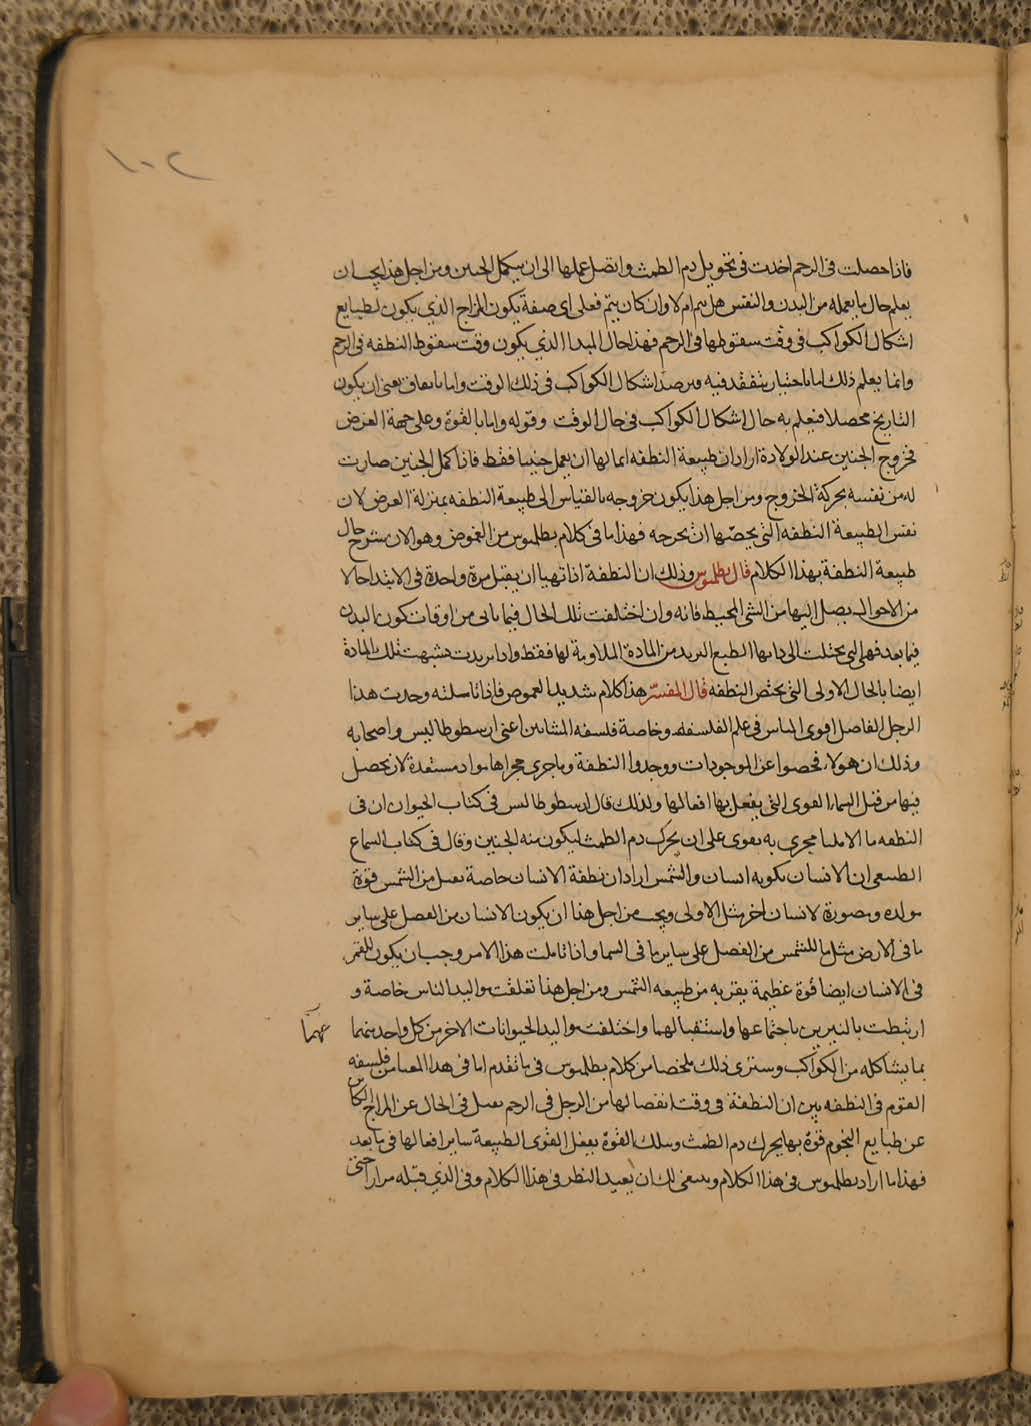 ١٠٢
فاذا حصلت في الرحم اخذت في تحويل دم الطمث واتصل عملها الى ان يكمل الجنين ومن اجل هذا يجب ان
يعلم حال ما يعمله من البدن والنفس هل يتم ام لا وان كان يتم فعلى اى صفة يكون المزاج الذي يكون لطبايع
اشكال الكواكب في وقت سقوطها في الرحم فهذا حال المبدا الذي يكون وقت سقوط النطفه في الرحم
وانما يعلم ذلك اما باختيار يتفقد فيه ويرصد اشكال الكواكب في ذلك الوقت واما باتفاق يعنى ان يكون
التاريخ محصلا فيعلم به حال اشكال الكواكب في حال الوقت وقوله واما بالقوة وعلى جهة العرض
فخروج الجنين عند الولادة اراد ان طبيعة النطفه انما لها ان يعمل جنينا فقط فاذا كمل الجنين صارت
له من نفسه بحركة الخروج ومن اجل هذا يكون خروجه بالقياس الى طبيعة النطفه بمنزلة العرض لان
نفس الطبيعة النطفه التي يخصها ان يخرجه فهذا ما في كلام بطلميوس من الغموض وهو الان يشرح حال
طبيعة النطفة بهذا الكلام قال بطلميوس وذلك ان النطفة اذا تهيا ان يقبل مرة واحدة في الابتدا حالا
من الاحوال يصل اليها من الشى المحيط فانه وان اختلفت تلك الحال فيما ياتى من اوقات تكون البدن
فيما بعد فهى التي يجتلب الى ذاتها الطبع التريد من المادة الملاومة لها فقط واذا تريدت تشبهت تلك المادة
ايضا بالحال الاولى التي يختص النطفه قال المفسر هذا كلام شديد الغموض فاذا تاملته وجدت هذا
الرجل الفاضل اقوى الناس في علم الفلسفه وخاصة فلسفه المشائين اعنى ارسطوطاليس واصحابه
وذلك ان هولاء فحصوا عن الموجودات ووجدوا النطفة وما جرى مجراها مواد مستعدة لان يحصل
فيها من قبل السماء القوى التي يفعل بها افعالها ولذلك قال ارسطوطاليس في كتاب الحيوان ان في
النطفه مجرى به يقوى على ان يحرك دم الطمث ليكون منه الجنين وقال في كتاب السماع
الطبيعي ان الانسان يكونه انسان والشمس اراد ان نطفة الانسان خاصة يقبل من الشمس قوة
مولده ومصورة لانسان اخر مثل الاولى ويجب من اجل هذا ان يكون الانسان من الفضل على ساير
ما في الارض مثل ما للشمس من الفضل على ساير ما في السما واذا تاملت هذا الامر وجب ان يكون للقمر
في الانسان ايضا قوة عظيمة يقربه من طبيعه الشمس ومن اجل هذا تعلقت مواليد الناس خاصة و
ارتبطت بالنيرين باجتماعها واستقبالهما واختلفت مواليد الحيوانات الاخر من كل واحد منهما
بما يشاكله من الكواكب وسترى ذلك ملخصا من كلام بطلميوس في ما تقدم اما في هذا المعنا من فلسفه
القوم في النطفه بين ان النطفة في وقت انفصالها من الرجل في الرحم يقبل في الحال عن المزاج الكاين
عن طبايع النجوم قوة بها يحرك دم الطمث وبتلك القوة يفعل القوى الطبيعة ساير افعالها في ما بعد
فهذا ما اراد بطلميوس في هذا الكلام وينبغى لك ان يعيد النظر في هذا الكلام وفي الذي قبله مرارا حتى